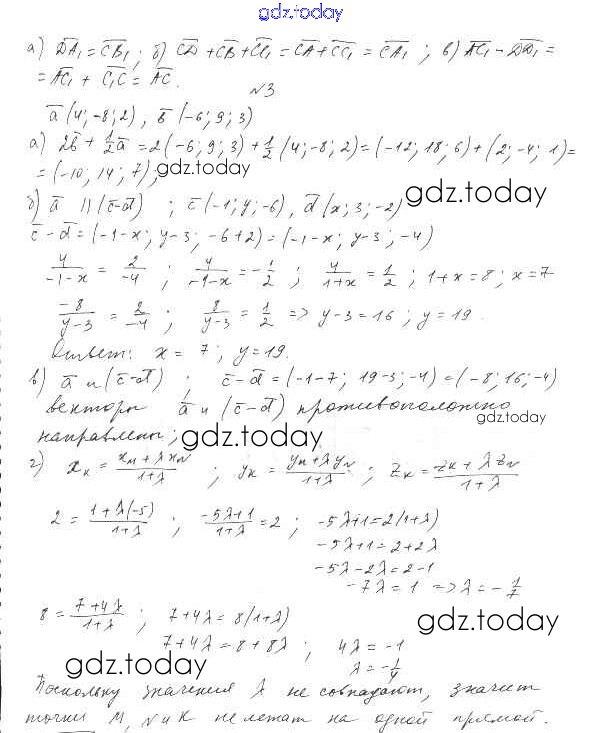 gdz.today
а) DA₁ = CB₁ ; б) CD + CB + CC₁ = CA + CC₁ = CA₁ ; в) AC₁ − DD₁ =
= AC₁ + C₁C = AC.
N3
a (4; −8; 2), b (−6; 9; 3)
а) 2b + 1/2 a = 2(−6; 9; 3) + 1/2 (4; −8; 2) = (−12; 18; 6) + (2; −4; 1) =
= (−10; 14; 7);
gdz.today
gdz.today
б) a || (c−d) ; c (−1; y; −6), d (x; 3; −2)
c − d = (−1−x; y−3; −6+2) = (−1−x; y−3; −4)
4/(−1−x) = 2/−4 ; 4/(−1−x) = −1/2 ; 4/(1+x) = 1/2 ; 1+x = 8; x = 7
−8/(y−3) = 2/−4 ; 8/(y−3) = 1/2 => y−3 = 16; y = 19.
Ответ: x = 7; y = 19.
в) a и (c−d) ; c − d = (−1−7; 19−3; −4) = (−8; 16; −4)
векторы a и (c−d) противоположно
gdz.today
направлены;
gdz.today
г) xₖ = (xₘ + λxₙ)/(1+λ) ; yₖ = (yₘ + λyₙ)/(1+λ) ; zₖ = (zₖ + λzₙ)/(1+λ)
gdz.today
2 = (1+λ(−5))/(1+λ) ; (−5λ+1)/(1+λ) = 2 ; −5λ+1 = 2(1+λ)
−5λ+1 = 2+2λ
−5λ−2λ = 2−1
−7λ = 1 => λ = −1/7
8 = (7+4λ)/(1+λ) ; 7+4λ = 8(1+λ)
gdz.today
7+4λ = 8+8λ ; 4λ = −1
λ = −1/4
gdz.today
Поскольку значения λ не совпадают, значит
точки M, N и K не лежат на одной прямой.